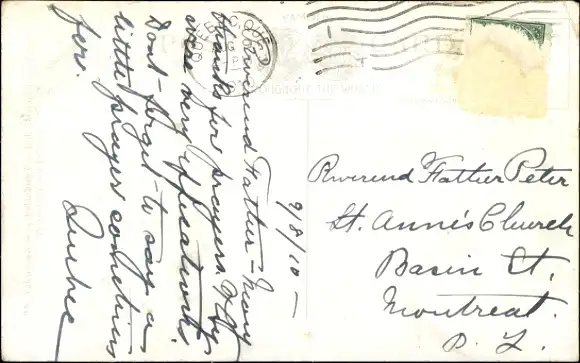 9/8/10 —
Reverend Father — Many
thanks for prayers. They
were very efficatious.
Don't forget to say a
little prayer sometimes
for.
Quebec
Reverend Father Peter
St. Anne's Church
Basin St.
Montreal.
P. Q.